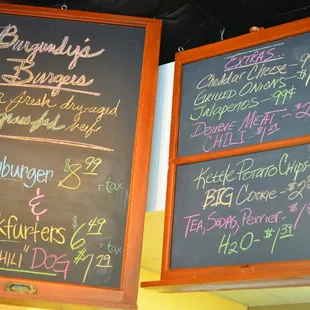 Burgundy's
Burgers
fresh dry-aged
grass fed beef
burger $8.99
+tax
&
kfurters $6.49
+tax
CHILI" DOG $7.29
EXTRAS...
Cheddar Cheese - 9
Grilled Onions
Jalapenos - 99¢
Double Meat - $2
CHILI - $1.
Kettle Potato Chips
BIG Cookie - $2
Tea, Sodas, Perrier - $1
H2O - $1.39